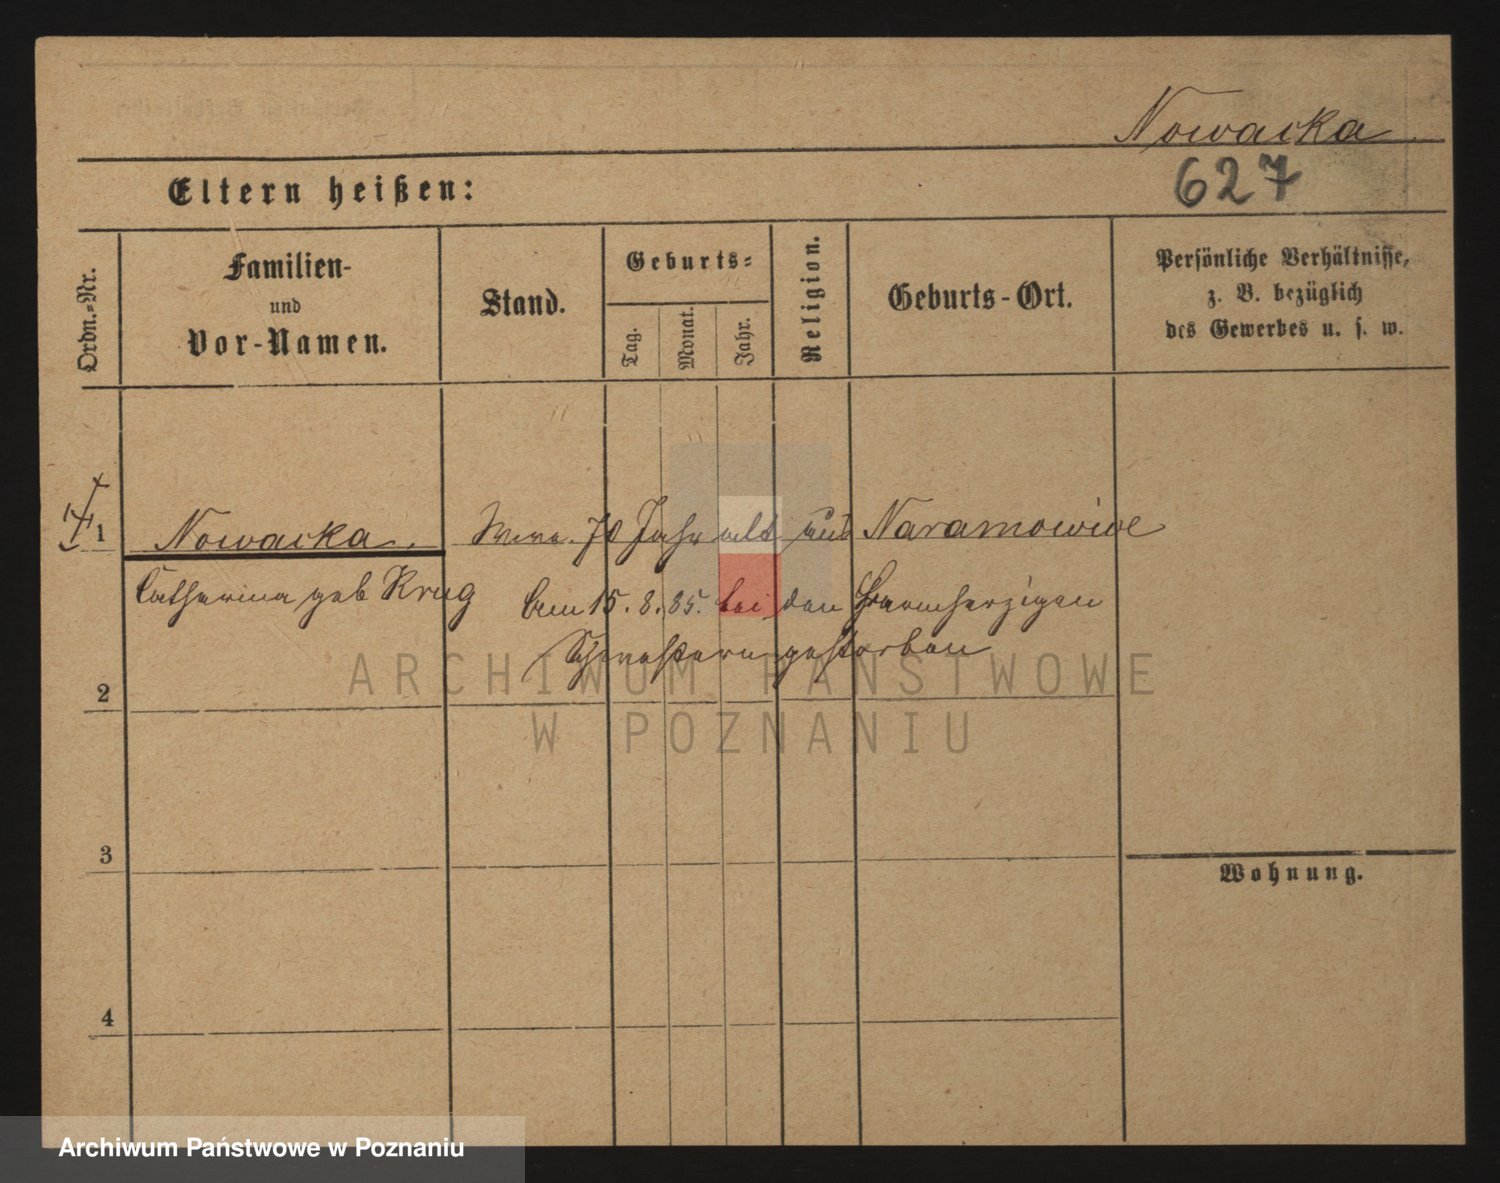 Nowacka
627
Eltern heißen:
Ordn.=Nr.
Familien-
und
Vor-Namen.
Stand.
Geburts=
Tag.
Monat.
Jahr.
Religion.
Geburts-Ort.
Persönliche Verhältnisse,
z. B. bezüglich
des Gewerbes u. s. w.
1 Nowacka. Wwe. 70 Jahr alt aus Naramowice
Catharina geb Krug am 15. 8. 85. bei den Barmherzigen
Schwestern gestorben
2
3
Wohnung.
4
ARCHIWUM PAŃSTWOWE
W POZNANIU
Archiwum Państwowe w Poznaniu